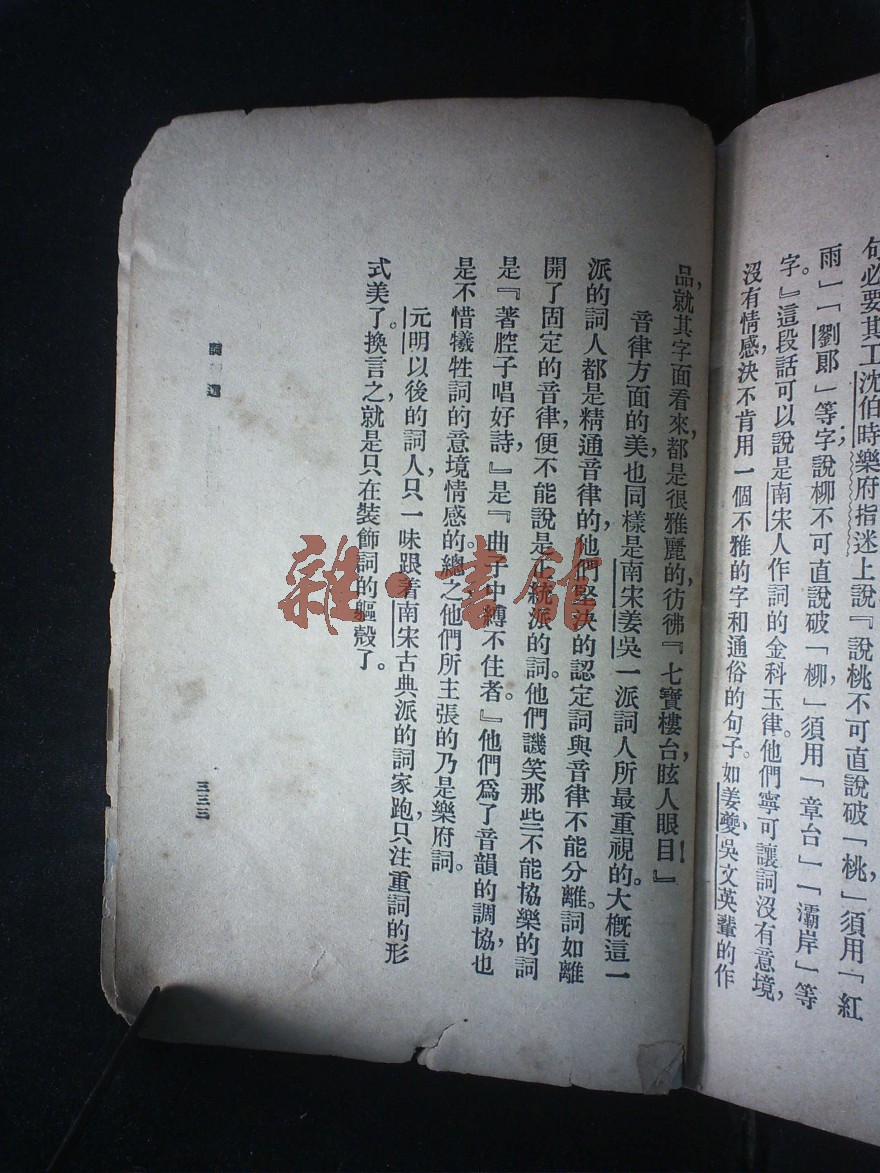 句必要其工。沈伯時樂府指迷上說『說桃不可直說破「桃」，須用「紅
雨」「劉郞」等字；說柳不可直說破「柳」，須用「章台」「灞岸」等
字。』這段話可以說是南宋人作詞的金科玉律。他們寧可讓詞沒有意境，
沒有情感，決不肯用一個不雅的字和通俗的句子。如姜夔，吳文英輩的作
品，就其字面看來，都是很雅麗的，彷彿『七寶樓台，眩人眼目！』
音律方面的美，也同樣是南宋姜吳一派詞人所最重視的。大槪這一
派的詞人都是精通音律的，他們堅決的認定詞與音律不能分離。詞如離
開了固定的音律，便不能說是正統派的詞。他們譏笑那些不能協樂的詞
是『著腔子唱好詩』，是『曲子中縛不住者。』他們爲了音韻的調協，也
是不惜犧牲詞的意境情感的。總之，他們所主張的乃是樂府詞。
元明以後的詞人，只一味跟着南宋古典派的詞家跑，只注重詞的形
式美了。換言之，就是只在裝飾詞的軀殼了。
詞選
三三三
雜·書館